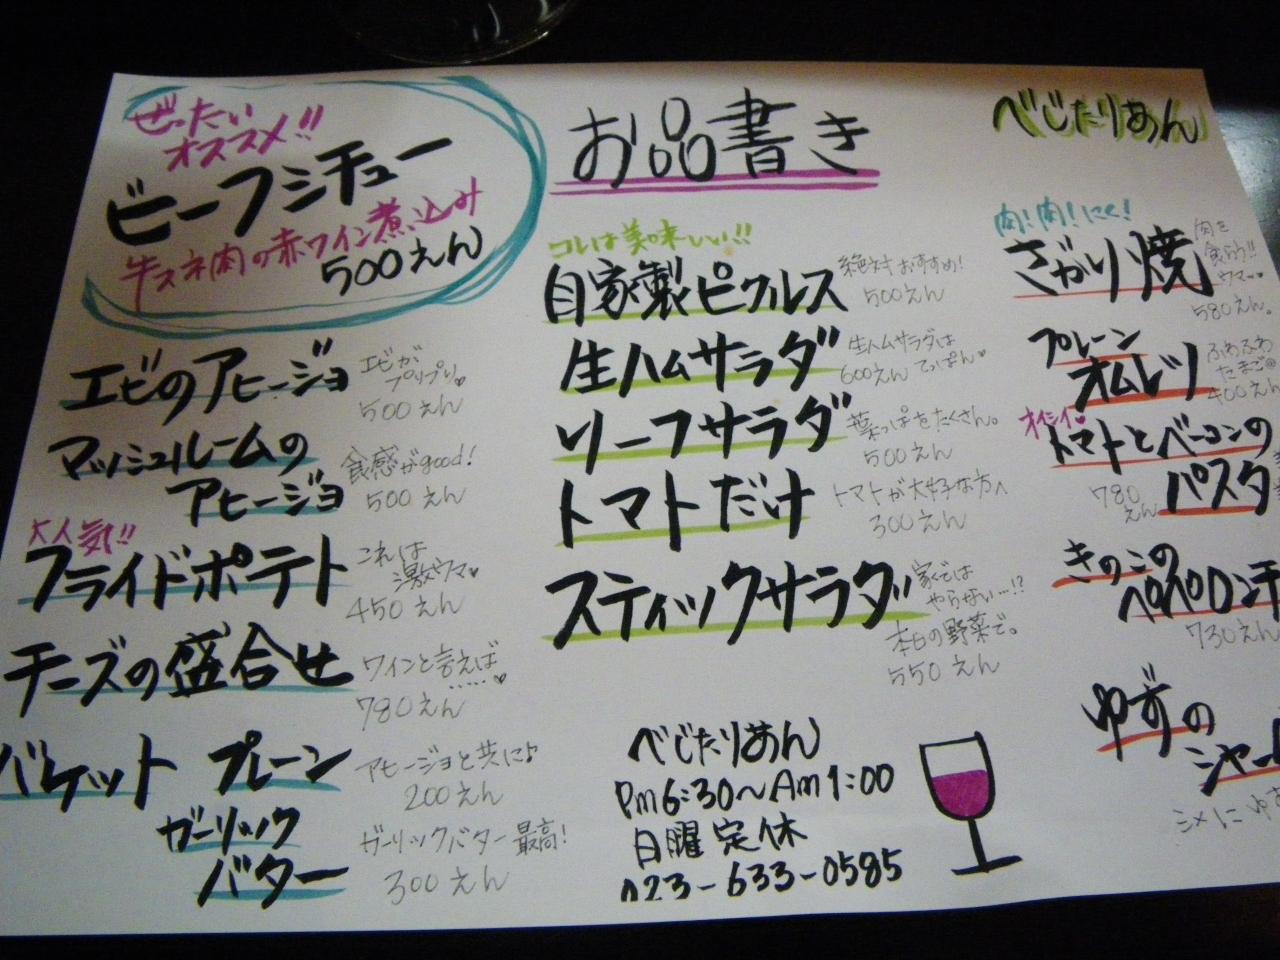 ぜったい
オススメ!!
ビーフシチュー
牛スネ肉の赤ワイン煮込み
500えん
エビのアヒージョ
エビが
プリプリ♥
500えん
マッシュルームの
アヒージョ
食感がgood!
500えん
大人気!!
フライドポテト
これは
激ウマ♥
450えん
チーズの盛合せ
ワインと言えば
……♥
780えん
バケット プレーン
アヒージョと共に♪
200えん
ガーリック
バター
ガーリックバター最高!
300えん
お品書き
コレは美味しい!!
自家製ピクルス
絶対おすすめ!
500えん
生ハムサラダ
生ハムサラダは
600えん てっぱん♥
リーフサラダ
葉っぱをたくさん。
500えん
トマトだけ
トマトが大好な方へ
300えん
スティックサラダ
家では
やらない…!?
本日の野菜で。
550えん
べじたりあん
Pm6:30〜Am1:00
日曜定休
023-633-0585
べじたりあん
肉!肉!にく!
ざがり焼
肉を
食らう!!
ウマー
580えん。
プレーン
オムレツ
ふわふわ
たまご
400えん
オイシイ♥
トマトとベーコンの
パスタ
780
えん
きのこの
ペペロンチ
730えん
ゆずの
シャー
シメにゆ